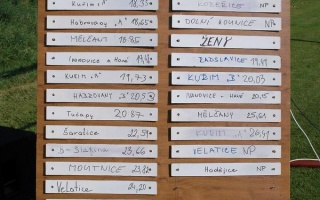 Kuřim "A" 18,35
Habrovany "A" 18,65
MĚLČANY 18.85
IVANOVICE n HANÉ
KUŘIM "A" 19,73
HABROVANY "B" 20,5
Tučapy 20.87
Šaratice 22,51
D-Slatina 23,66
MOUTNICE 23,82
Velatice 24,20
KOBEŘICE NP
DOLNÍ KOUNICE NP
ŽENY
RADSLAVICE 19,49
KUŘIM "B" 20,03
IVANOVICE - HANÉ 20,15
MĚLČANY 25,61
KUŘIM "A" 26,91
VELATICE NP
Hodějice NP